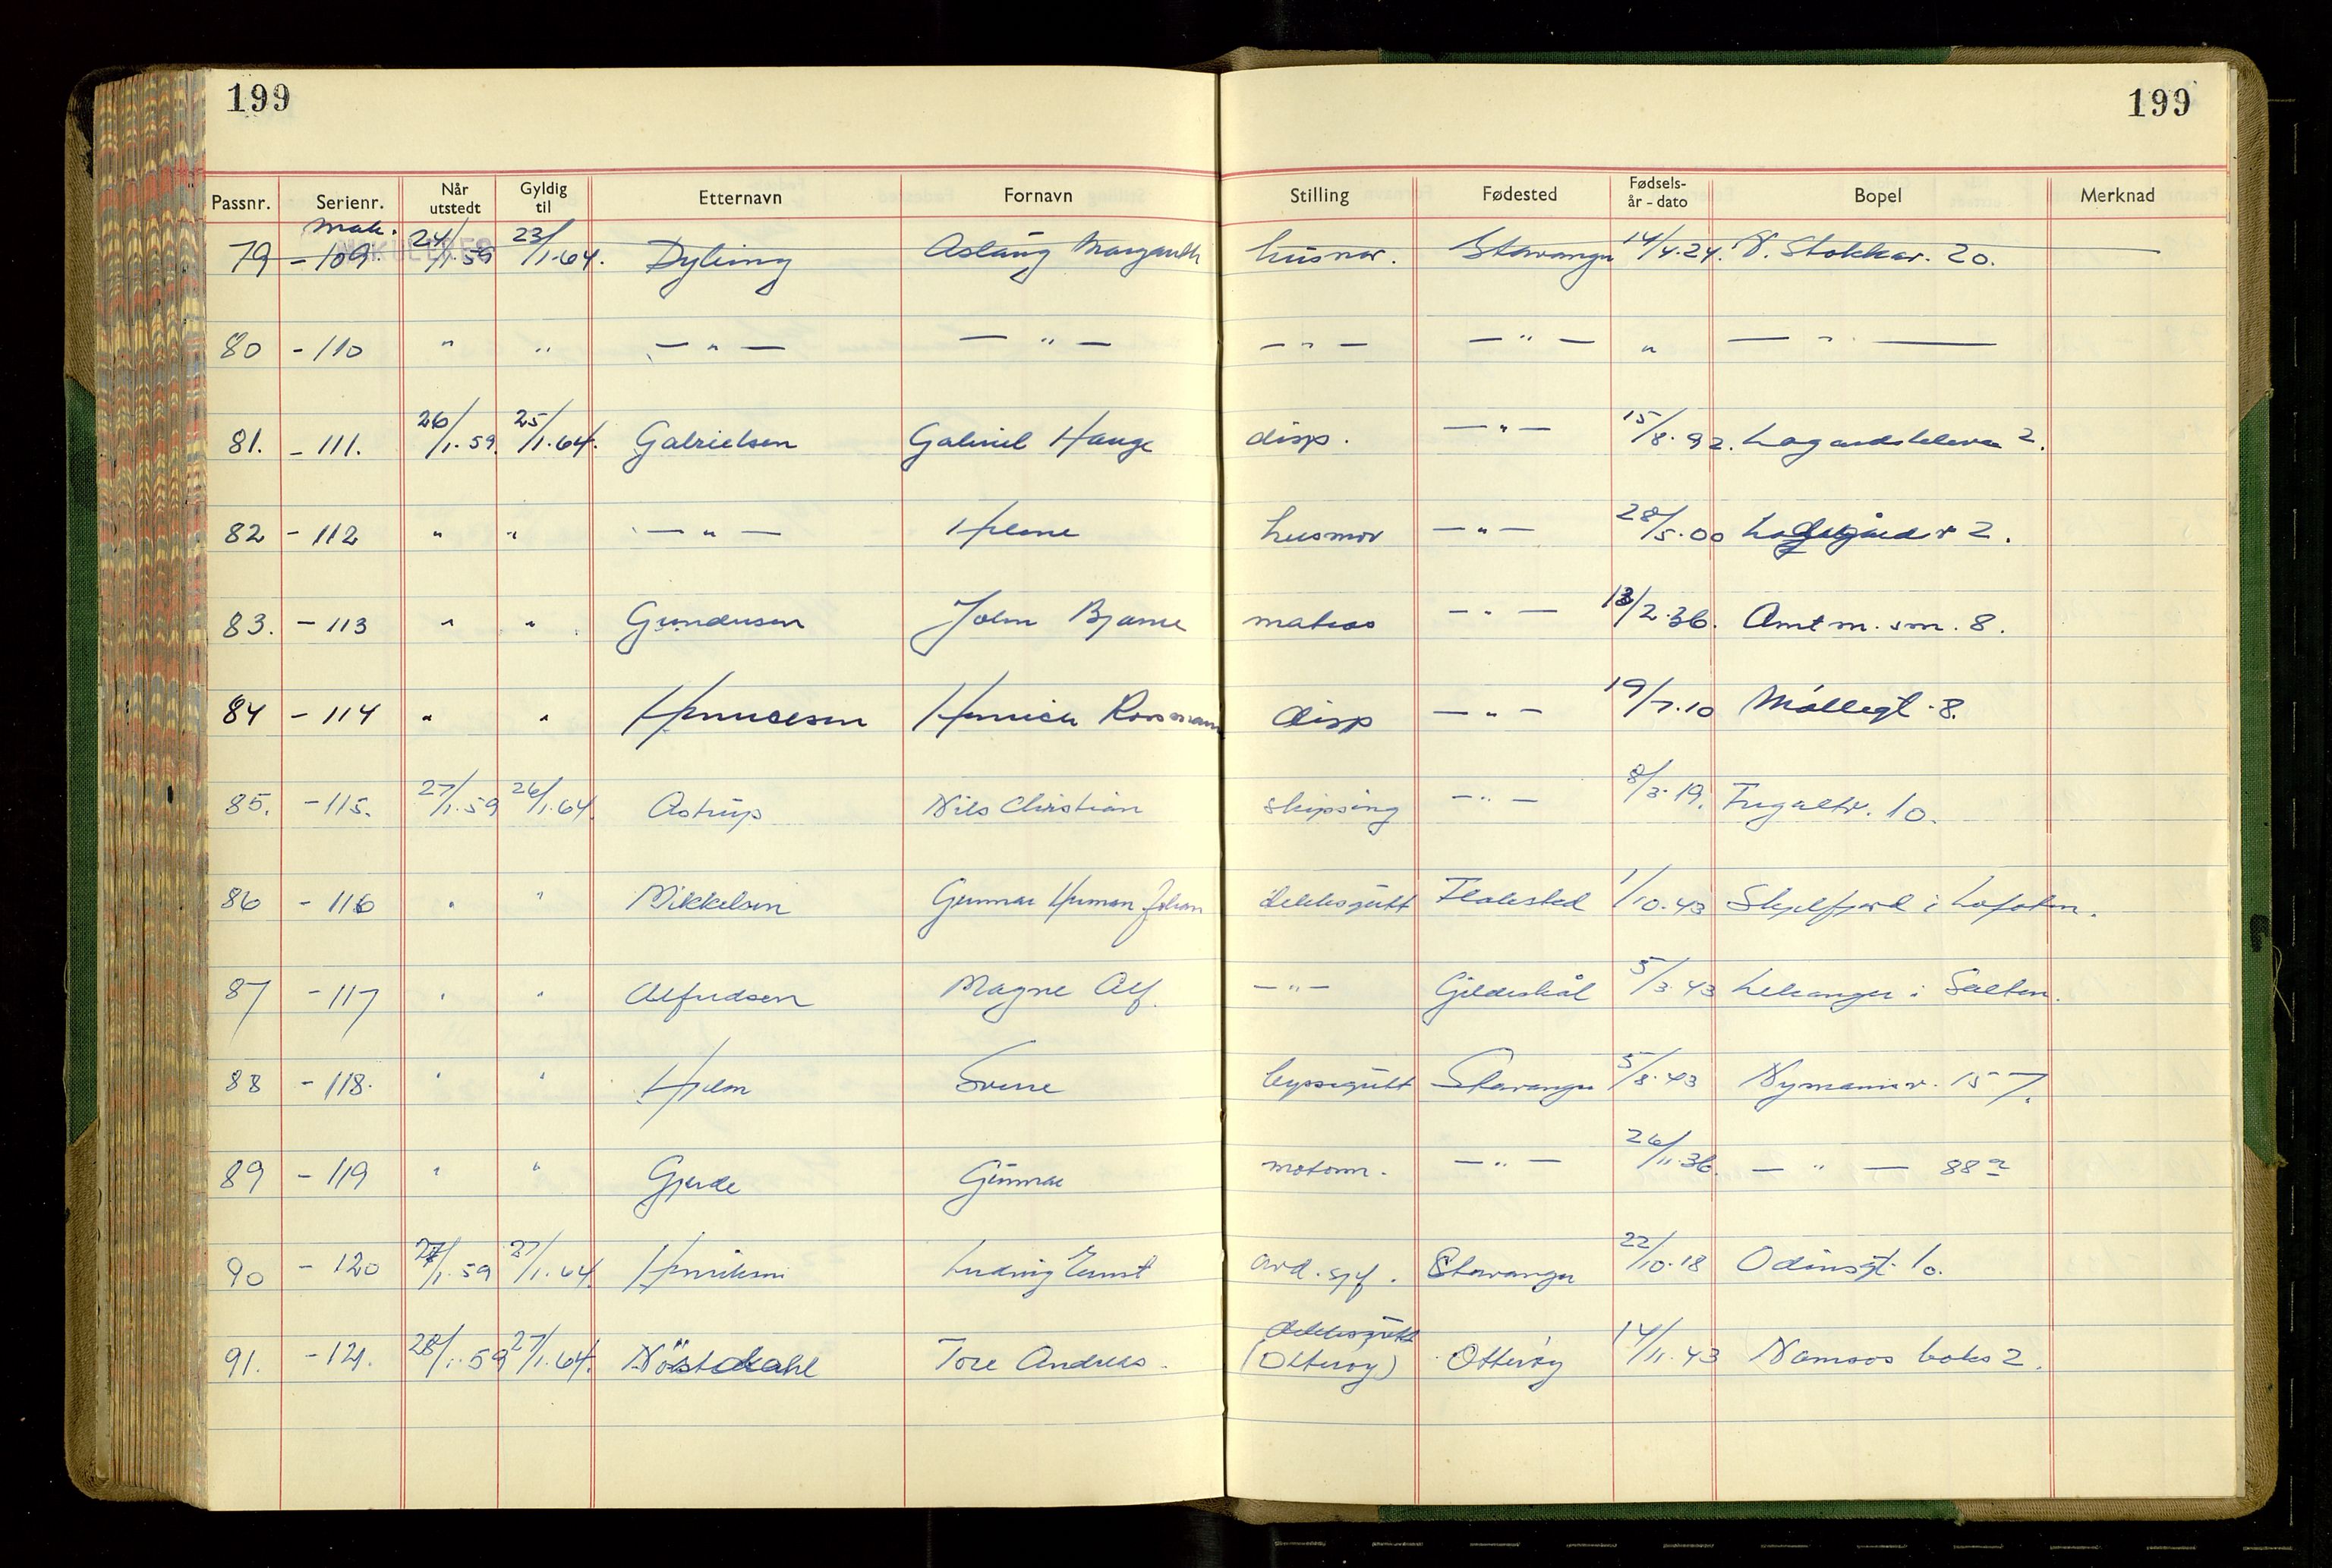 199 199
Passnr. Serienr. Når utstedt Gyldig til Etternavn Fornavn Stilling Fødested Fødsels-år - dato Bopel Merknad
mak. MAKULERES
79 - 109. 24/1.59 23/1.64. Dybing Aslaug Margareth husmor. Stavanger 14/4.24. V. Stokkav. 20.
80 - 110 " " — " — — " — — " — — " — " — " —
81. - 111. 26/1.59. 25/1.64. Gabrielsen Gabriel Hauge disp. — " — 15/8.92. Lagårdskleiva 2.
82 - 112 " " — " — Helene husmor — " — 28/5.00 2.
83. - 113 " " Gundersen John Bjarne matros — " — 13/2.36. Amtm. sm. 8.
84 - 114 " " Henricksen Henrich disp — " — 19/7.10 Møllegt 8.
85. - 115. 27/1.59 26/1.64. Astrup Nils Christian skipsing — " — 8/3.19. 10.
86 - 116 " " Mikkelsen Gunnar Herman Johan dekksgutt Flakstad 1/10.43 Skjelfjord i Lofoten.
87 - 117 " " Alfredsen Magne Alf. — " — Gildeskål 5/3.43 i Salten.
88 - 118. " " Hjelm Sverre byssegutt Stavanger 5/8.43 Nymansv. 157.
89 - 119 " " Gjerde Gunnar motorm. — " — 26/11.36. — " — 88a
90 - 120 27/1.59 27/1.64. Henriksen Ludvig Ernst avd. sjef. Stavanger 22/10.18 Odinsgt. 10.
dekksgutt
91. - 121. 28/1.59 27/1.64. Nöstdahl Tore Andreas. (Otterøy) Otterøy 14/11.43 Namsos boks 2.